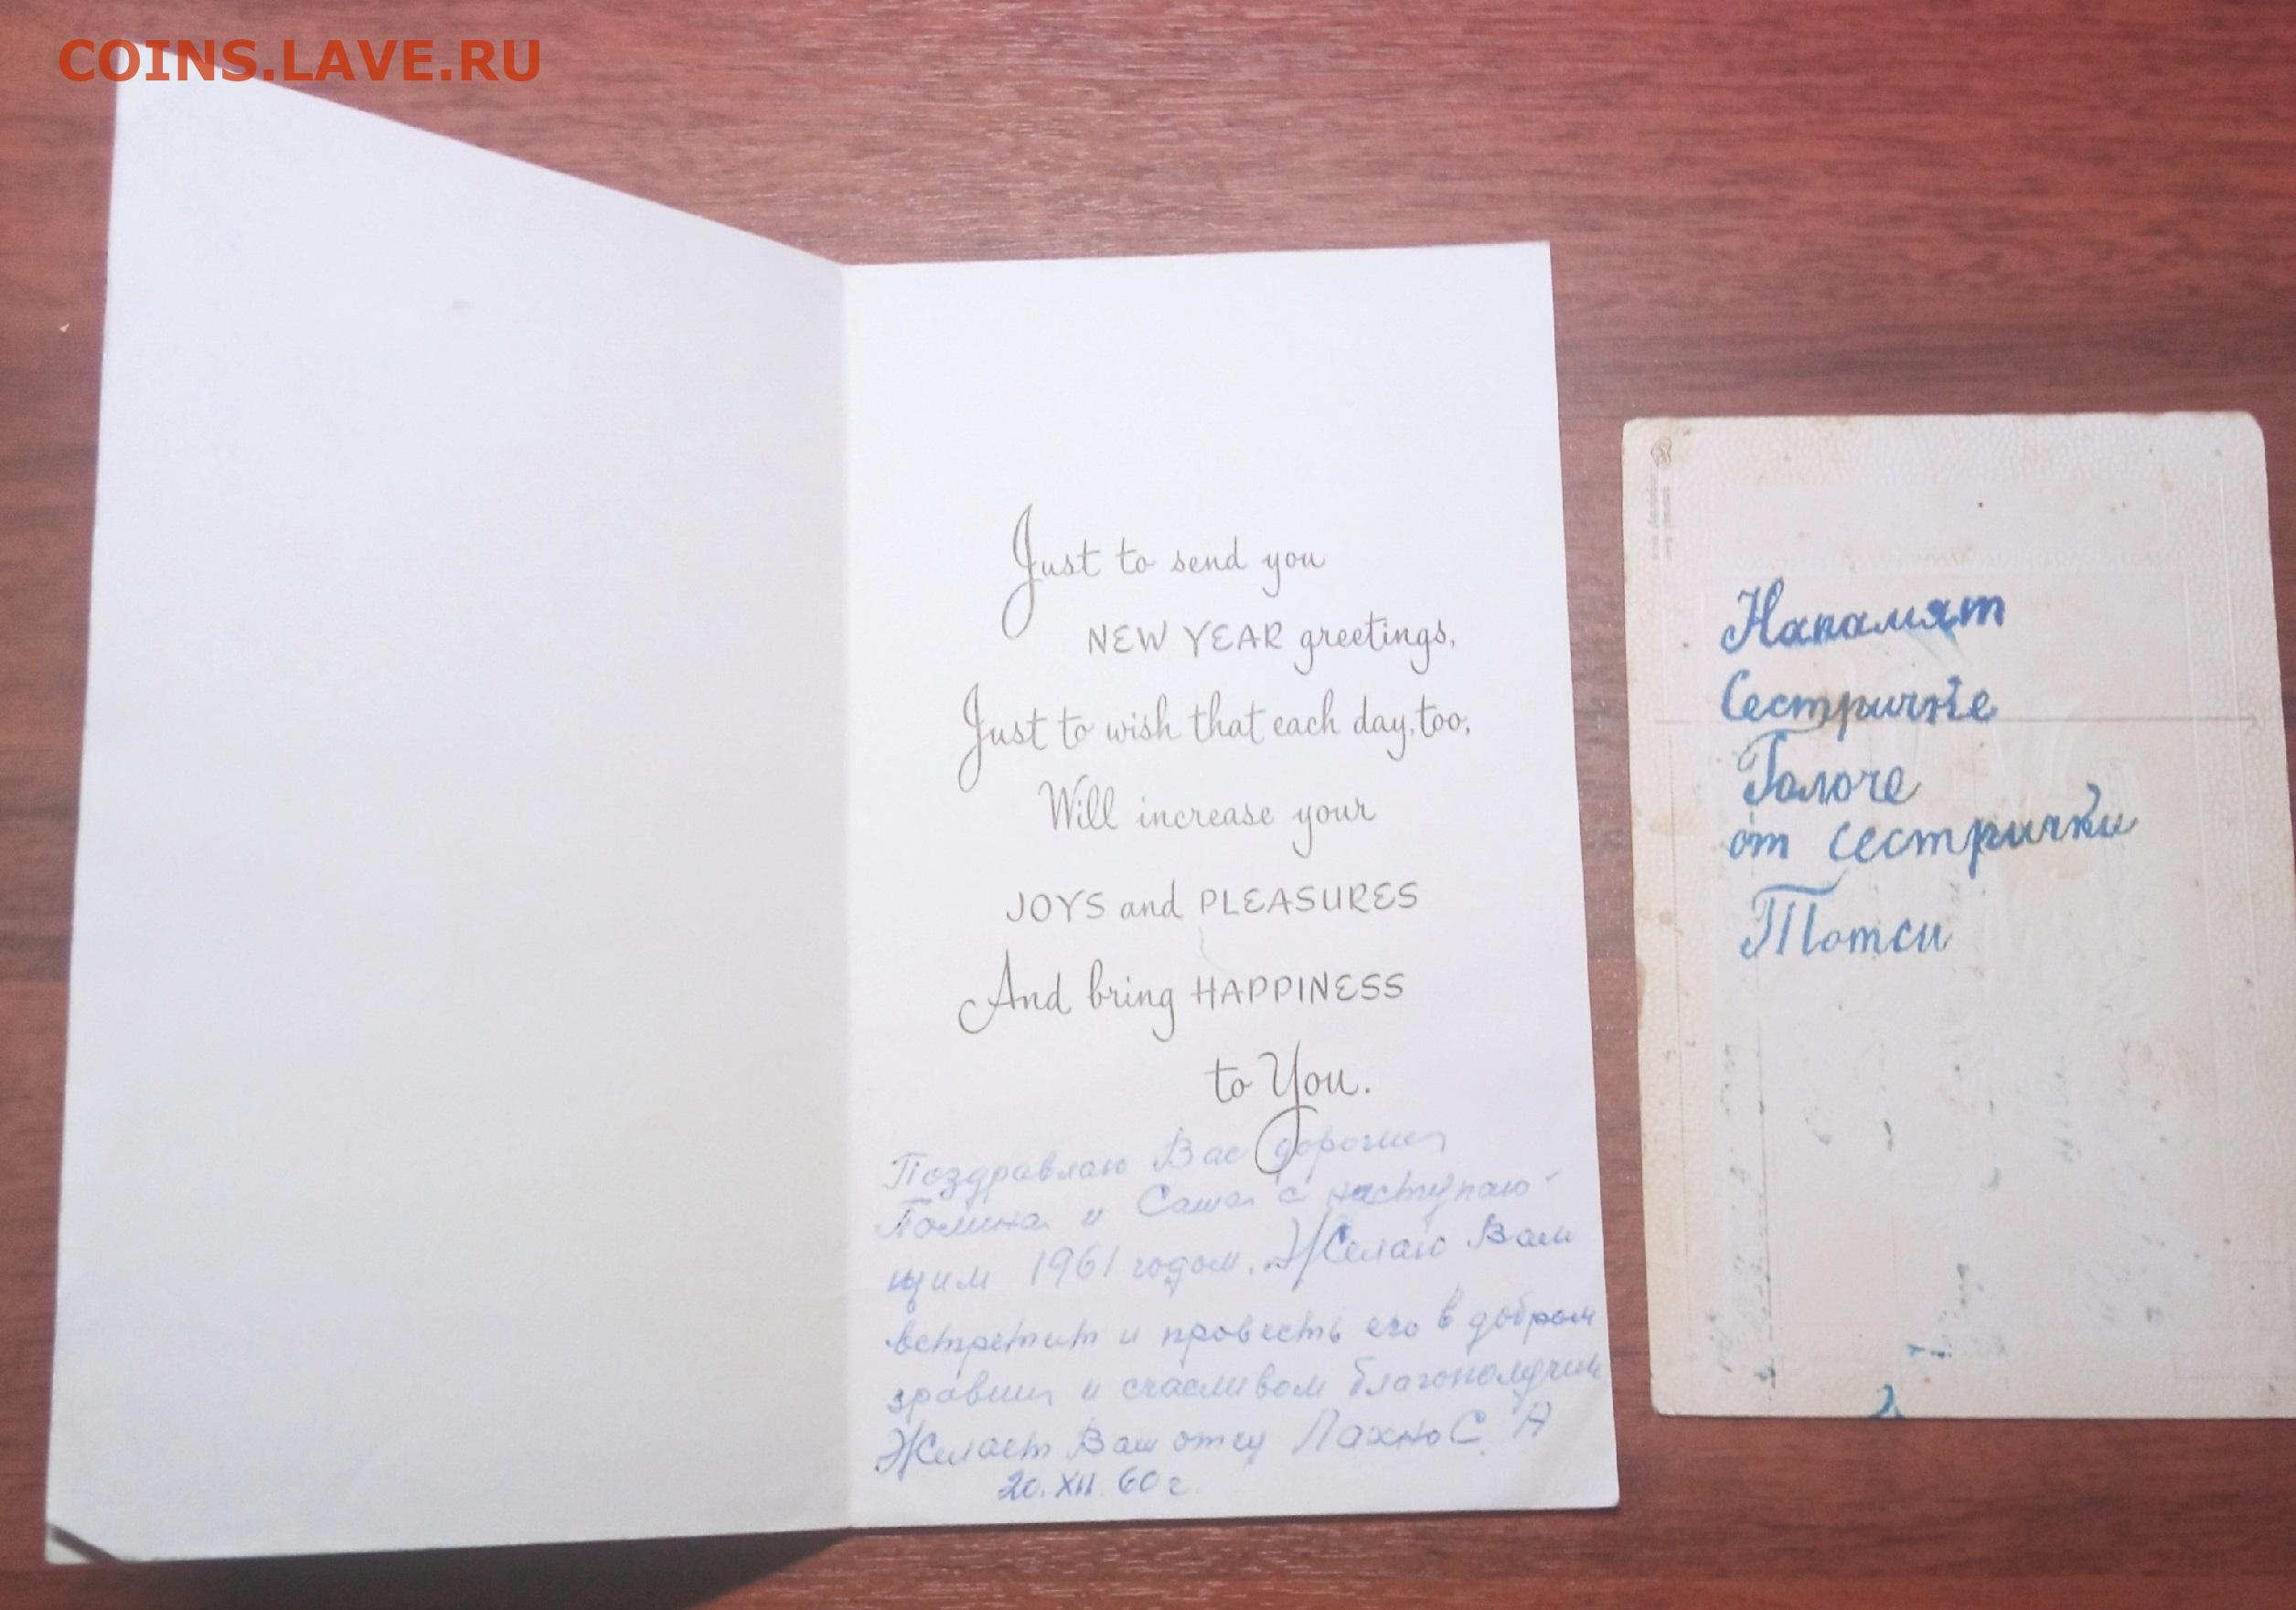 COINS.LAVE.RU
Just to send you
NEW YEAR greetings,
Just to wish that each day, too,
Will increase your
JOYS and PLEASURES
And bring HAPPINESS
to You.
Поздравлаю Вас дорогие
и Саша с наступаю-
щим 1961 годом. Желаю Вам
встретит и провесть его в добром
здравии и счасливом благополучии
Желает Ваш отец Лахно С. А
20. XII. 60 г.
Напамят
Сестричке
Галоче
от сестрички
Тотси